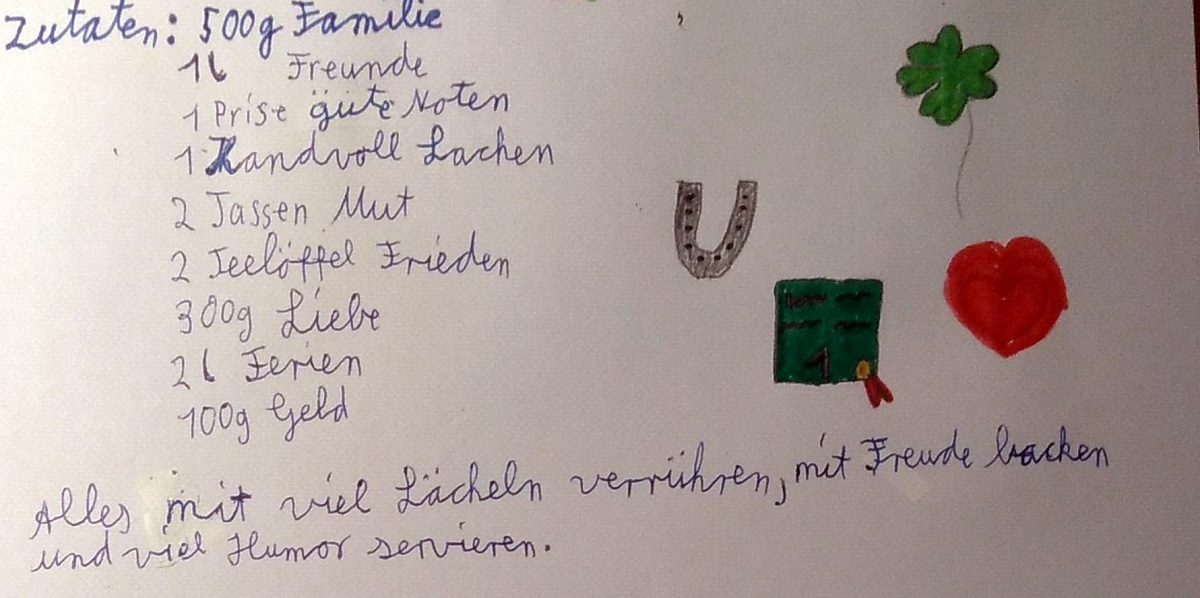 Zutaten: 500g Familie
1l Freunde
1 Prise gute Noten
1 Handvoll Lachen
2 Tassen Mut
2 Teelöffel Frieden
300g Liebe
2l Ferien
100g Geld
1
Alles mit viel Lächeln verrühren, mit Freude backen
und viel Humor servieren.